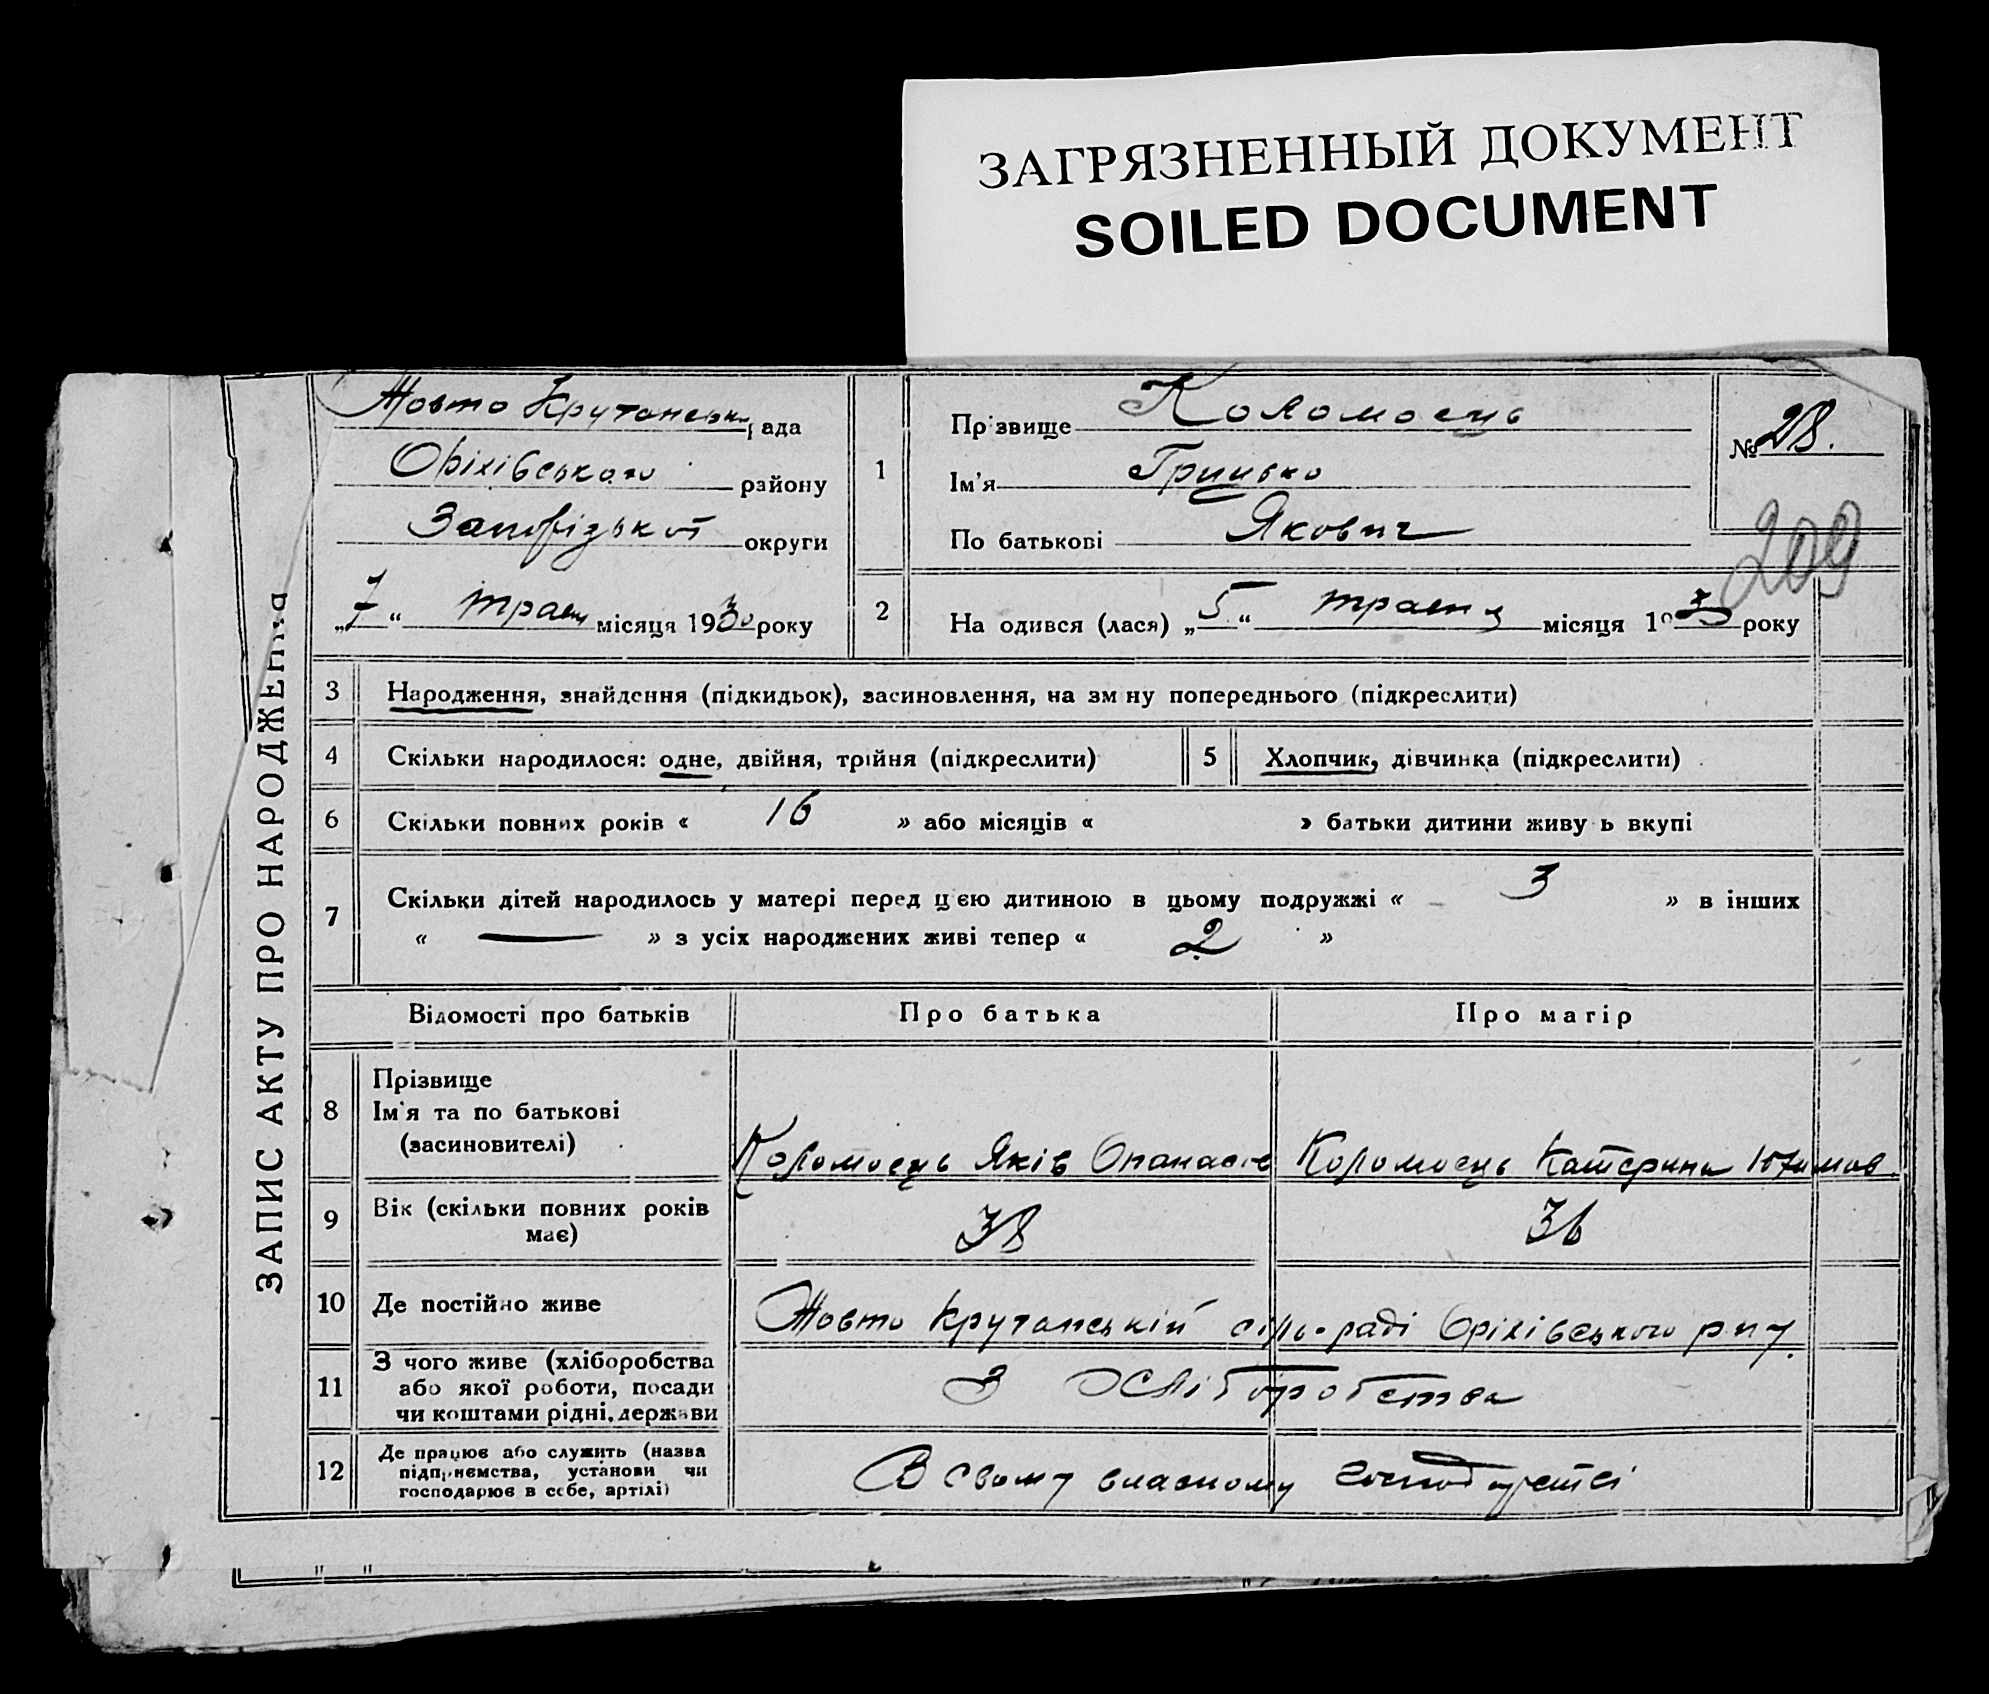 ЗАГРЯЗНЕННЫЙ ДОКУМЕНТ
SOILED DOCUMENT
ЗАПИС АКТУ ПРО НАРОДЖЕННЯ
Жовто Крутянська рада
Оріхівського району
Запорізької округи
„7“ травня місяця 1930 року
1
Прізвище Коломоєць
Ім'я Грицько
По батькові Якович
№ 28.
209
2
На одився (лася) „5“ травня місяця 1930 року
3 Народження, знайдення (підкидьок), засиновлення, на зм ну попереднього (підкреслити)
4 Скільки народилося: одне, двійня, трійня (підкреслити)
5 Хлопчик, дівчинка (підкреслити)
6 Скільки повних років « 16 » або місяців « » батьки дитини живу ь вкупі
7 Скільки дітей народилось у матері перед цією дитиною в цьому подружжі « 3 » в інших
« — » з усіх народжених живі тепер « 2 »
Відомості про батьків Про батька Про матір
8 Прізвище
Ім'я та по батькові
(засиновителі)
Коломоєць Яків Опанасів Коломоєць Катерина Юхимов
9 Вік (скільки повних років
має)
38 36
10 Де постійно живе Жовто Крутянській сіль-раді Оріхівського р-ну.
11 З чого живе (хліборобства
або якої роботи, посади
чи коштами рідні, держави
З хліборобства
12 Де працює або служить (назва
підприємства, установи чи
господарює в себе, артілі)
В свому власному господарстві